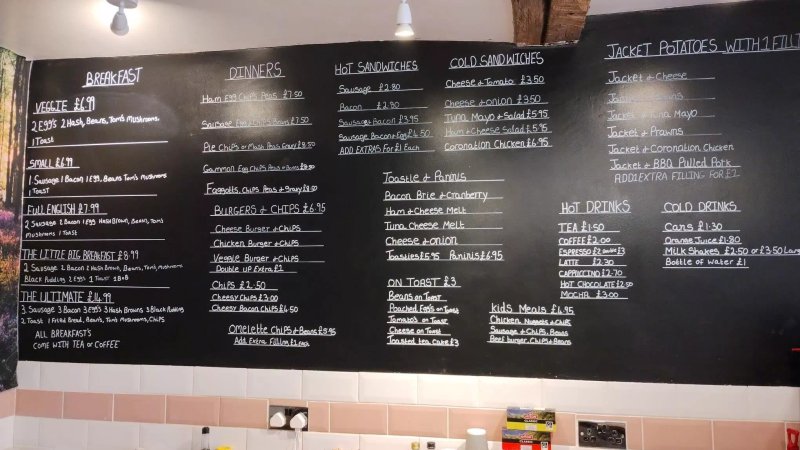 BREAKFAST
VEGGIE £6.99
2 Egg's 2 Hash, Beans, Tom's Mushrooms.
1 Toast
SMALL £6.99
1 Sausage 1 Bacon 1 Egg, Beans Tom's Mushrooms
1 Toast
FULL ENGLISH £7.99
2 Sausage 2 Bacon 1 Egg Hash Brown, Bean, Tom's
Mushrooms 1 Toast
THE LITTLE BIG BREAKFAST £8.99
2 Sausage 2 Bacon 2 Hash Brown, Beans, Tom's, Mushrooms
Black Pudding 2 Egg's 1 Toast 1 B+B
THE ULTIMATE £14.99
3 Sausage 3 Bacon 3 Egg's 3 Hash Browns 3 Black Pudding
2 Toast 1 Fried Bread, Bean's, Tom's, Mushrooms, Chips
ALL BREAKFAST'S
COME WITH TEA or COFFEE
DINNERS
Ham Egg Chips Peas £7.50
Sausage Egg Chips Beans £7.50
Pie Chips or Mash Peas Gravy £8.50
Gammon Egg Chips Peas or Beans £8.50
Faggots, Chips Peas + Gravy £8.50
BURGERS + CHIPS £6.95
Cheese Burger + Chips
Chicken Burger + Chips
Veggie Burger + Chips
Double up Extra £2
Chips £2.50
Cheesy Chips £3.00
Cheesy Bacon Chips £4.50
Omelette Chips + Beans £8.95
Add Extra Filling £1 each
HOT SANDWICHES
Sausage £2.80
Bacon £2.80
Sausage + Bacon £3.95
Sausage Bacon + Egg £4.50
ADD EXTRAS For £1 Each
COLD SANDWICHES
Cheese + Tomato £3.50
Cheese + onion £3.50
Tuna Mayo + Salad £5.95
Ham + Cheese Salad £5.95
Coronation Chicken £6.95
Toastie + Paninis
Bacon Brie + Cranberry
Ham + Cheese Melt
Tuna Cheese Melt
Cheese + onion
Toasties £5.95 Paninis £6.95
ON TOAST £3
Beans on Toast
Poached Egg's on Toast
Tomato's on Toast
Cheese on Toast
Toasted tea Cake £3
Kids Meals £4.95
Chicken Nuggets + Chips
Sausage + Chips, Beans
Beef burger, Chips + Beans
JACKET POTATOES WITH 1 FILLING
Jacket + Cheese
Jacket + Beans
Jacket + Tuna Mayo
Jacket + Prawns
Jacket + Coronation Chicken
Jacket + BBQ Pulled Pork
ADD 1 EXTRA FILLING for £2
HOT DRINKS
TEA £1.50
COFFEE £2.00
ESPRESSO £2 Double £3
LATTE £2.30
CAPPUCCINO £2.70
HOT CHOCOLATE £2.50
MOCHA £3.00
COLD DRINKS
Cans £1.30
Orange Juice £1.80
Milk Shakes £2.50 or £3.50 Large
Bottle of Water £1
CLASSIC